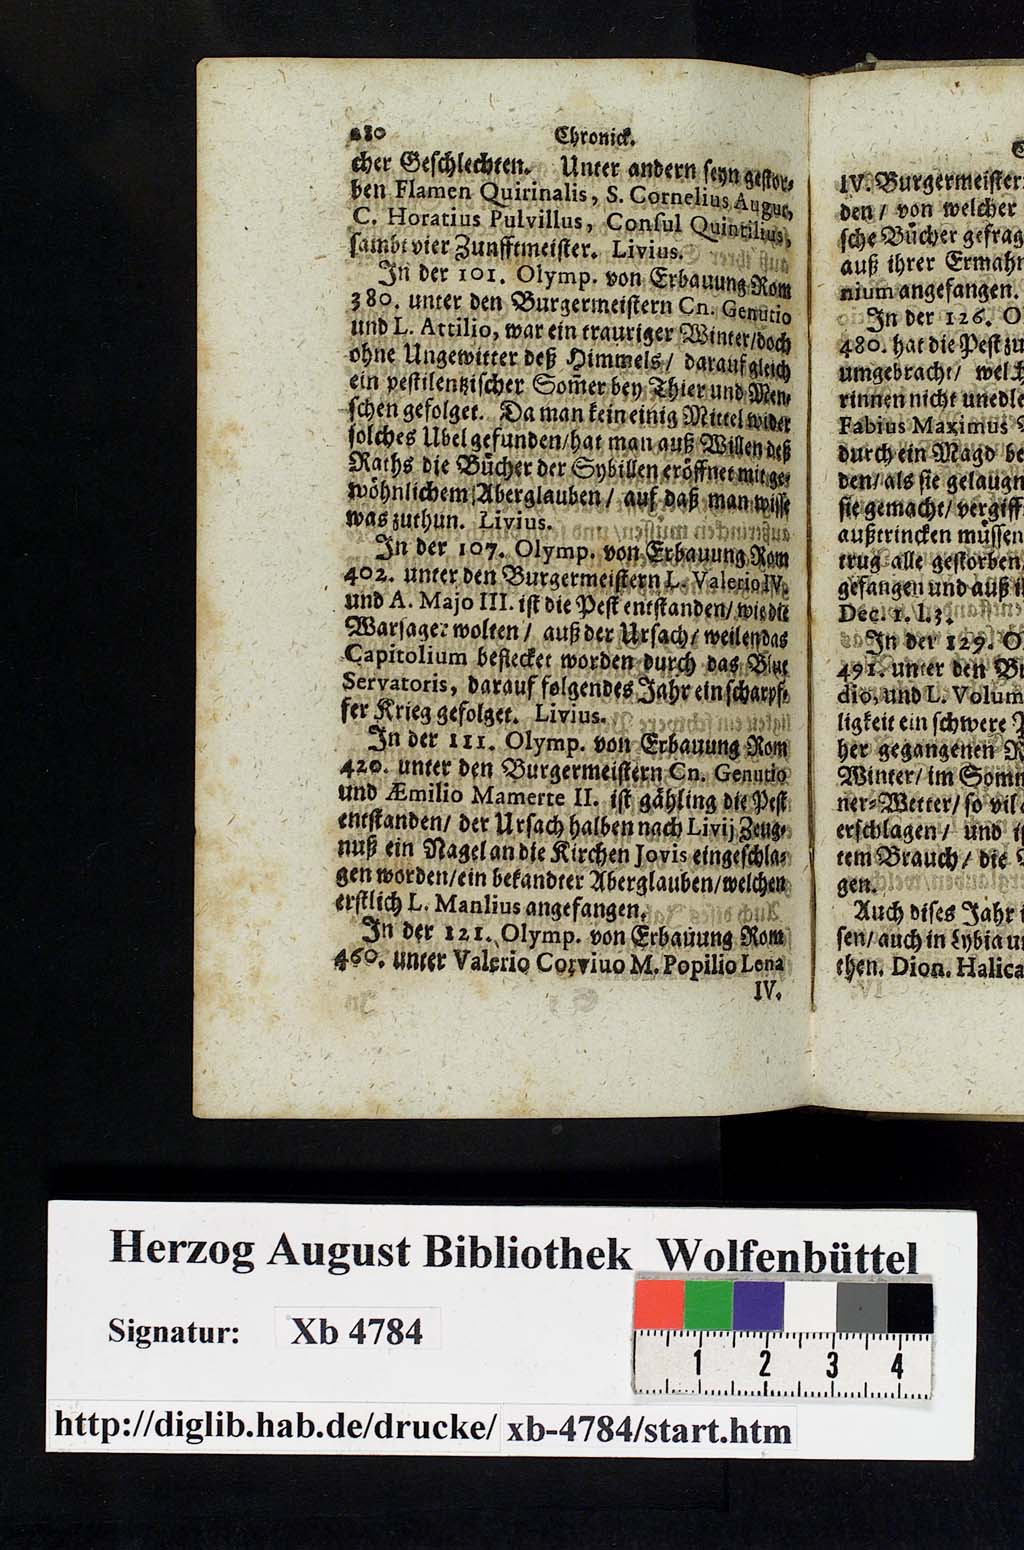 280 Chronick.
cher Geschlechten. Unter andern seyn gestor-
ben Flamen Quirinalis, S. Cornelius Augur,
C. Horatius Pulvillus, Consul Quintilius,
sambt vier Zunfftmeister. Livius.
In der 101. Olymp. von Erbauung Rom
380. unter den Burgermeistern Cn. Genutio
und L. Attilio, war ein trauriger Winter/ doch
ohne Ungewitter deß Himmels/ darauf gleich
ein pestilentzischer Som̃er bey Thier und Men-
schen gefolget. Da man kein einig Mittel wider
solches Ubel gefunden/ hat man auß Willen deß
Raths die Bücher der Sybillen eröffnet mit ge-
wöhnlichem Aberglauben/ auf daß man wisse
was zuthun. Livius.
In der 107. Olymp. von Erbauung Rom
402. unter den Burgermeistern L. Valerio IV.
und A. Majo III. ist die Pest entstanden/ wie die
Warsager wolten/ auß der Ursach/ weilen das
Capitolium beflecket worden durch das Blut
Servatoris, darauf folgendes Jahr ein scharpf-
fer Krieg gefolget. Livius.
In der 111. Olymp. von Erbauung Rom
420. unter den Burgermeistern Cn. Genutio
und Æmilio Mamerte II. ist gähling die Pest
entstanden/ der Ursach halben nach Livij Zeug-
nuß ein Nagel an die Kirchen Jovis eingeschla-
gen worden/ ein bekandter Aberglauben/ welchen
erstlich L. Manlius angefangen.
In der 121. Olymp. von Erbauung Rom
460. unter Valerio Corviuo M. Popilio Lena
IV.
IV. Burgermeistern
den/ von welcher
sche Bücher gefrag
auß ihrer Ermahn
nium angefangen.
In der 126. O
480. hat die Pest zu
umgebracht/ welch
rinnen nicht unedle
Fabius Maximus
durch ein Magd be
den/ als sie gelaugn
sie gemacht/ vergiff
außtrincken müssen
trug alle gestorben
gefangen und auß i
Dec. 1. l. 3.
In der 129. O
491. unter den Bu
dio, und L. Volum
ligkeit ein schwere P
her gegangenen R
Winter/ im Somm
ner-Wetter/ so vil
erschlagen/ und i
tem Brauch/ die
gen.
Auch dises Jahr i
sen/ auch in Lybia u
chen. Dion. Halica
Herzog August Bibliothek Wolfenbüttel
Signatur: Xb 4784
1 2 3 4
http://diglib.hab.de/drucke/ xb-4784/start.htm